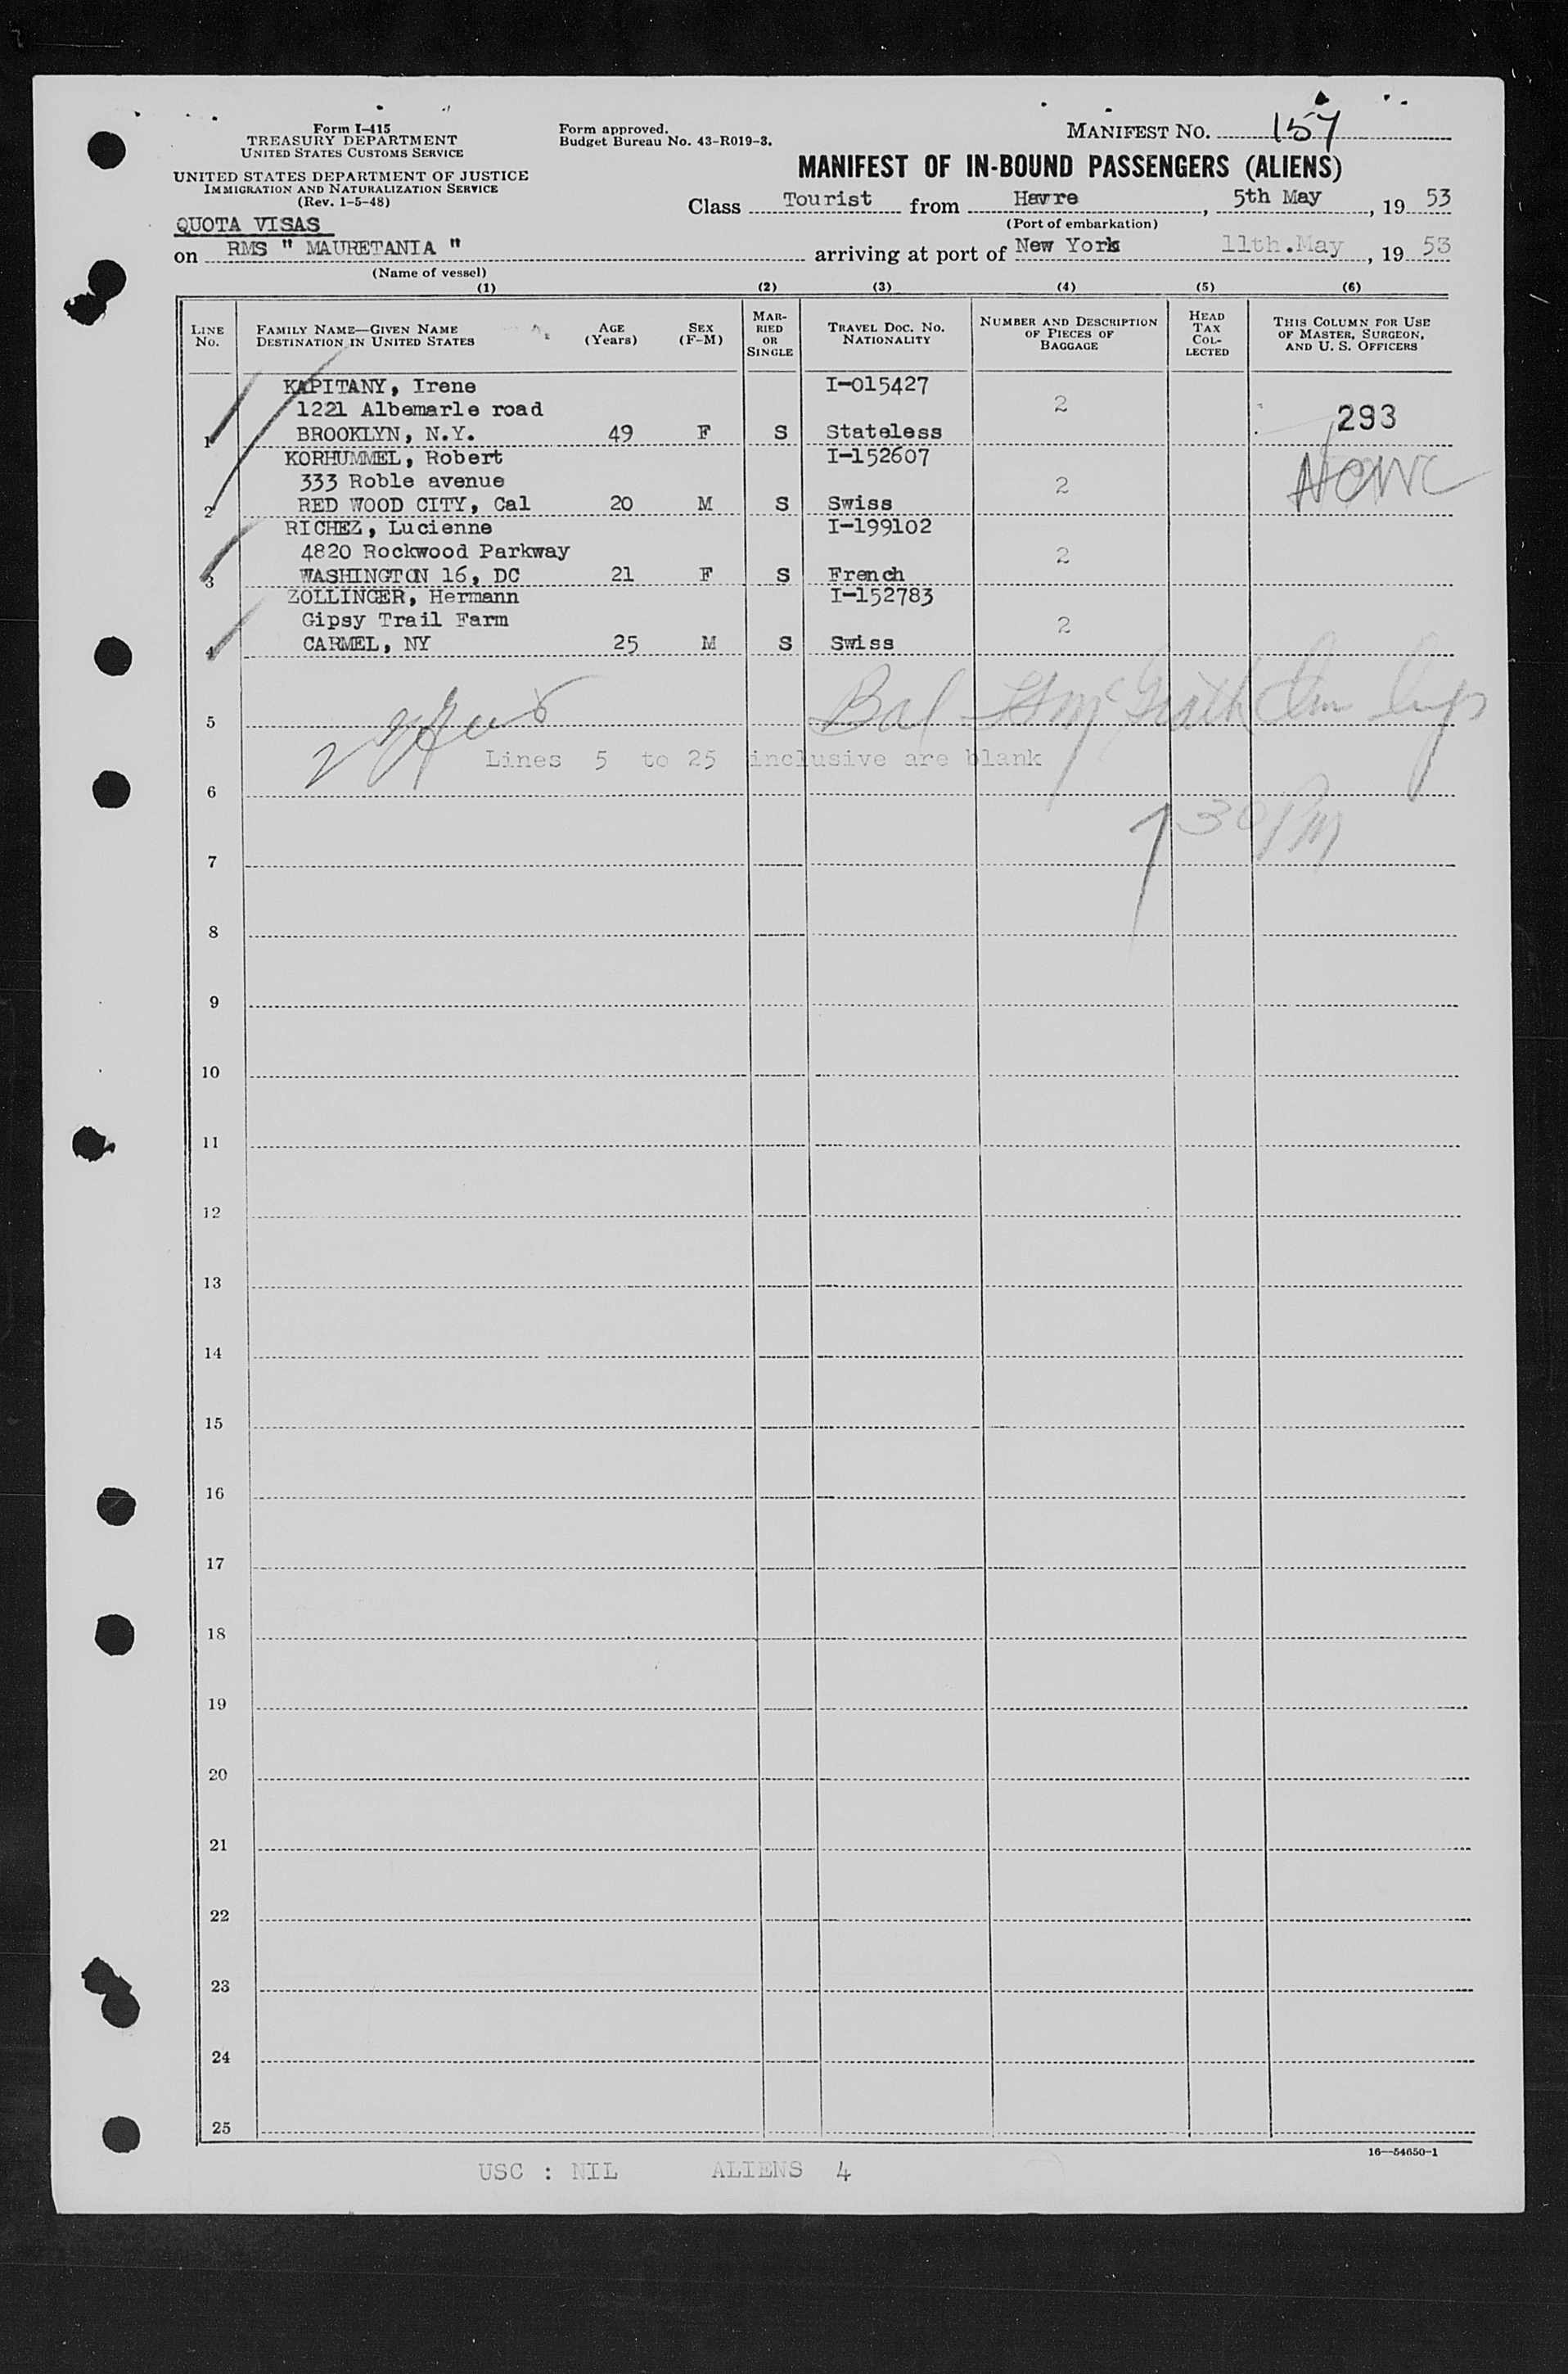 Form I-415
TREASURY DEPARTMENT
UNITED STATES CUSTOMS SERVICE
UNITED STATES DEPARTMENT OF JUSTICE
IMMIGRATION AND NATURALIZATION SERVICE
(Rev. 1-5-48)
Form approved.
Budget Bureau No. 43-R019-3.
MANIFEST NO. 157
MANIFEST OF IN-BOUND PASSENGERS (ALIENS)
Class Tourist from Havre, 5th May, 19 53
(Port of embarkation)
QUOTA VISAS
on RMS " MAURETANIA " arriving at port of New York 11th.May, 19 53
(Name of vessel)
(1) (2) (3) (4) (5) (6)
LINE NO. FAMILY NAME—GIVEN NAME DESTINATION IN UNITED STATES AGE (Years) SEX (F-M) MARRIED OR SINGLE TRAVEL DOC. NO. NATIONALITY NUMBER AND DESCRIPTION OF PIECES OF BAGGAGE HEAD TAX COLLECTED THIS COLUMN FOR USE OF MASTER, SURGEON, AND U. S. OFFICERS
KAPITANY, Irene I-015427
1221 Albemarle road 2 293
1 BROOKLYN, N.Y. 49 F S Stateless
KORHUMMEL, Robert I-152607
333 Roble avenue 2
2 RED WOOD CITY, Cal 20 M S Swiss
RICHEZ, Lucienne I-199102
4820 Rockwood Parkway 2
3 WASHINGTON 16, DC 21 F S French
ZOLLINGER, Hermann I-152783
Gipsy Trail Farm 2
4 CARMEL, NY 25 M S Swiss
5
Lines 5 to 25 inclusive are blank
6
30 PM
7
8
9
10
11
12
13
14
15
16
17
18
19
20
21
22
23
24
25
16—54650-1
USC : NIL ALIENS 4